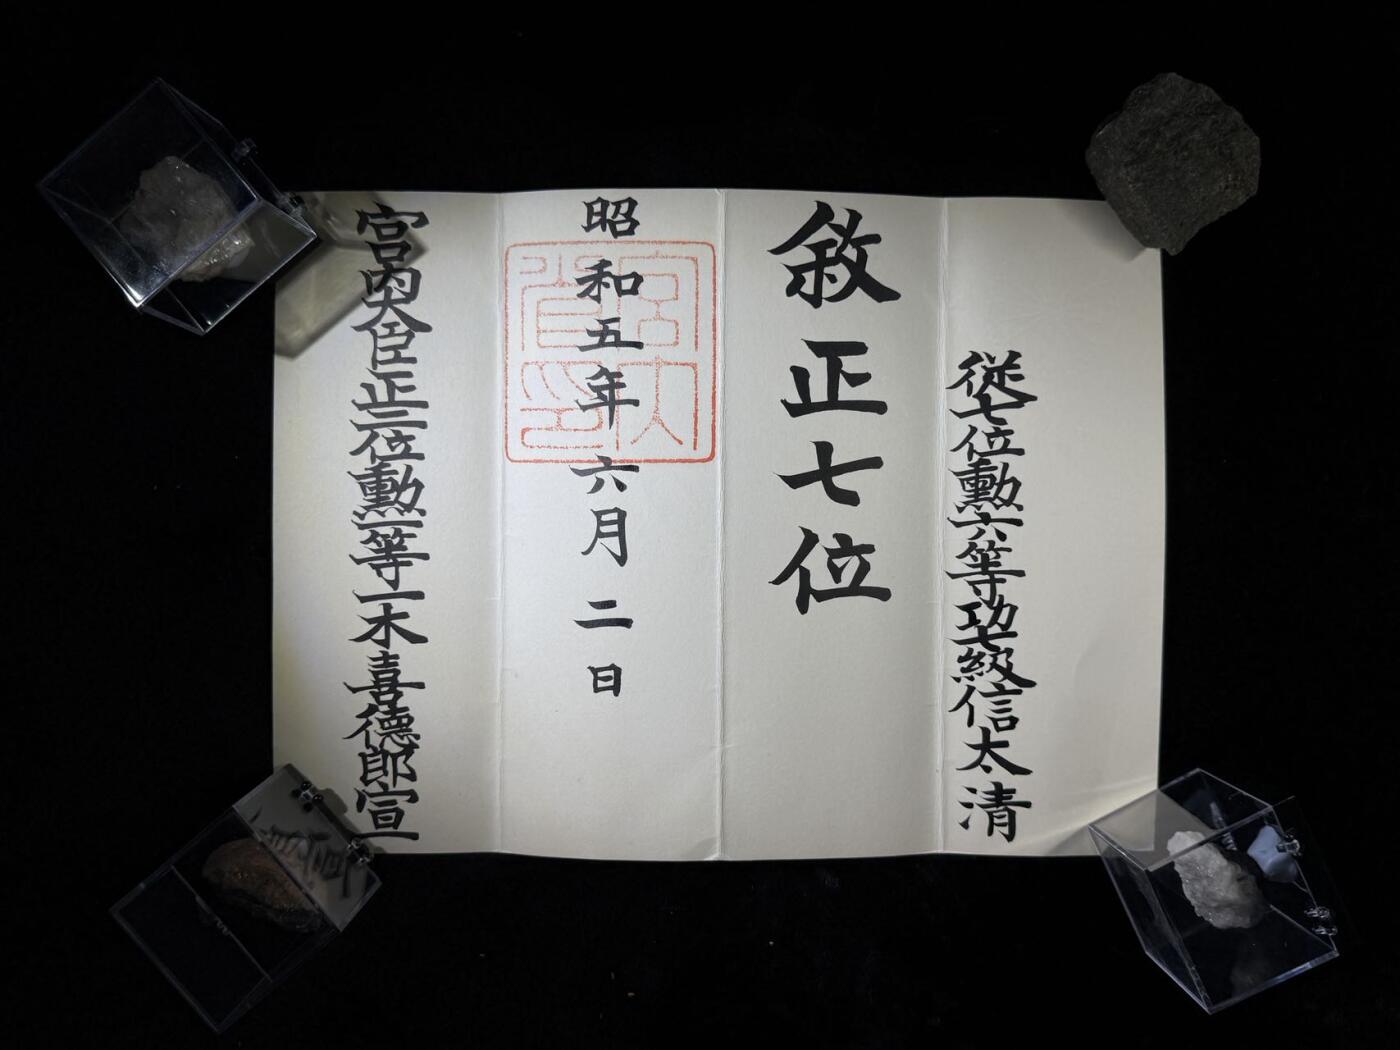 従七位勲六等功七級信太清
敘正七位
昭和五年六月二日
宮内省印
宮内大臣正三位勲一等一木喜德郎宣